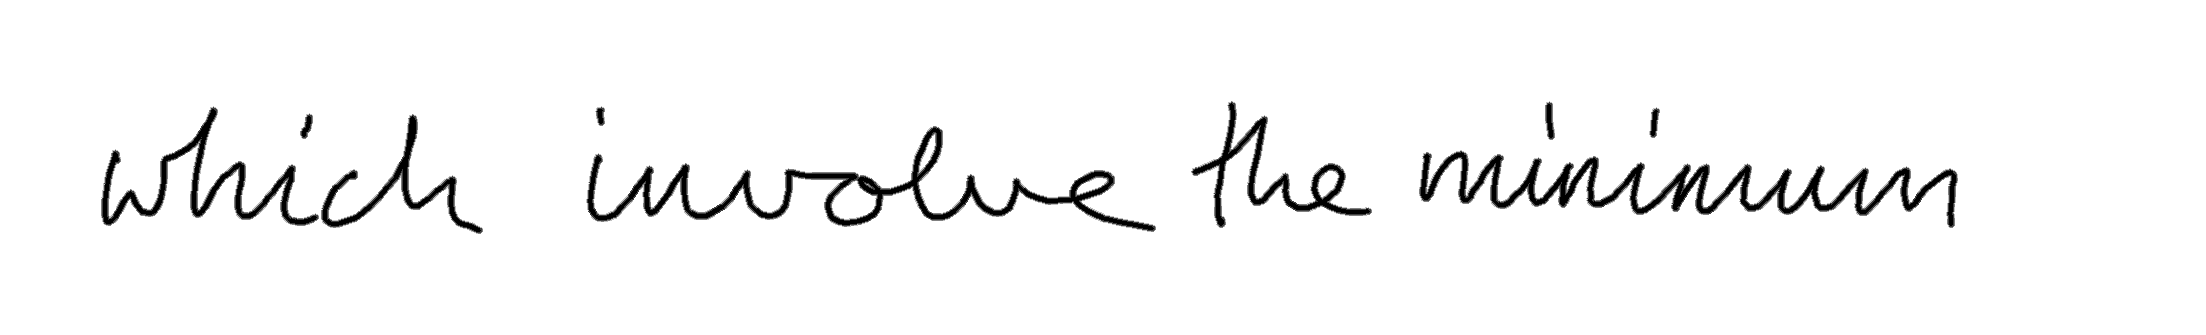 which involve the minimum